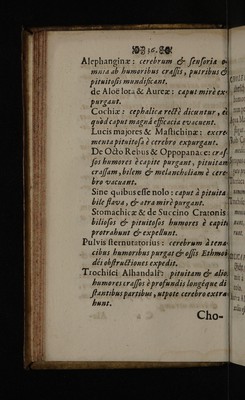 36.
Alephanginæ: cerebrum & sensoria o-
mnia ab humoribus crassis, putribus &
pituitosis mundificant.
de Aloë lota & Aureæ: caput mirè ex-
purgant.
Cochiæ: cephalicæ rectè dicuntur, e
quòd caput magnâ efficacia evacuent.
Lucis majores & Mastichinæ: excre-
menta pituitosa è cerebro expurgant.
De Octo Rebus & Oppopanace: cras-
sos humores è capite purgant, pituitam
crassam, bilem & melancholiam è cere-
bro vacuant.
Sine quibus esse nolo: caput à pituita
bile flava, & atra mirè purgant.
Stomachicæ & de Succino Cratonis
biliosos & pituitosos humores è capite
protrahunt & expellunt.
Pulvis sternutatorius: cerebrum à tena-
cibus humoribus purgat & ossis Ethmoi-
dis obstructiones expedit.
Trochisci Alhandalæ: pituitam & alios
humores crassos è profundis longéque di-
stantibus partibus, utpote cerebro extra-
hunt.
Cho-